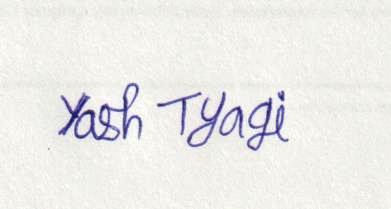 Yash Tyagi